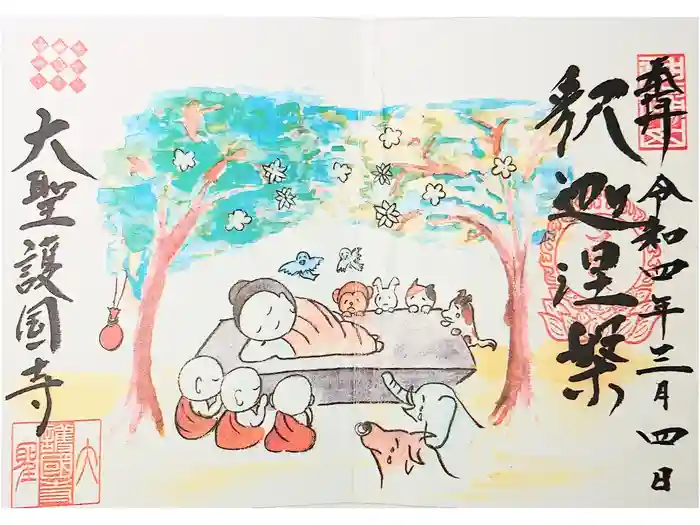 奉拝
令和四年三月四日
釈迦涅槃
大聖護国寺
大聖護國寺